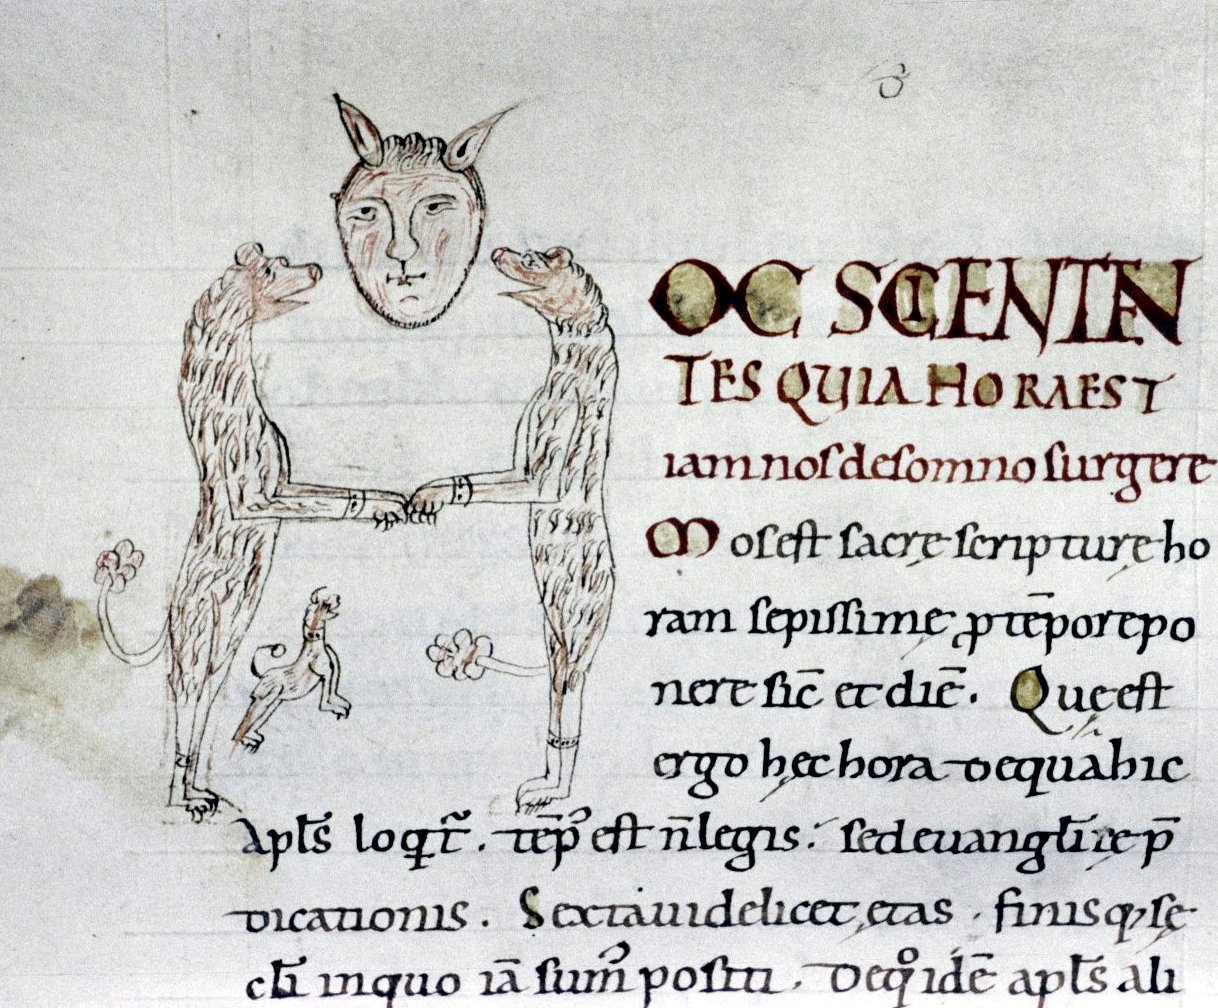 OC SCIENTES
TES QUIA HORA EST
iam nos de somno surgere
Mos est sacrę scripturę ho
ram sepissimę p tēpore po
nere sic̄ et diē. Que est
ergo hęc hora de qua hic
apłs loqr̃. tēp᾽ est n̄ legis. sed euanglīcę p̄
dicationis. Sexta uidelicet ętas. finisq; sę
clī in quo iā sum᾽ positi. De q° idē apłs ali